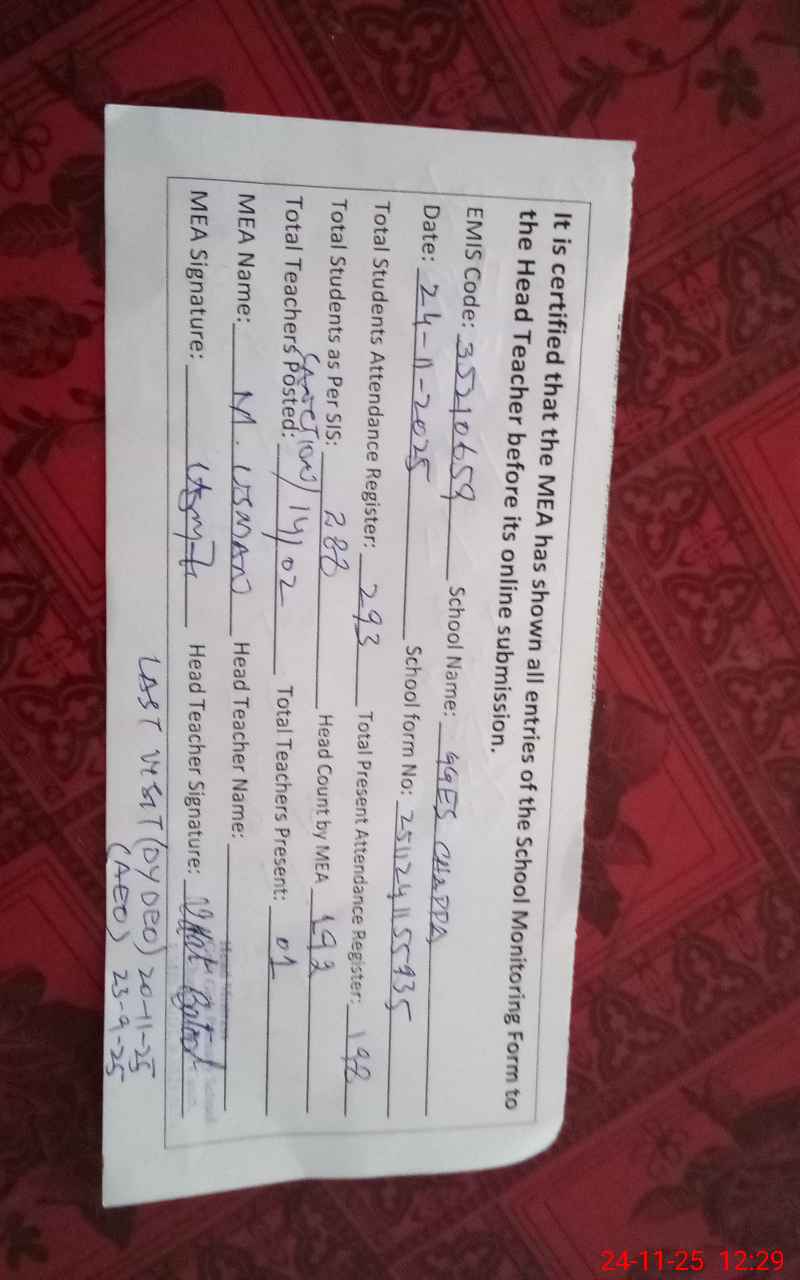 It is certified that the MEA has shown all entries of the School Monitoring Form to
the Head Teacher before its online submission.
EMIS Code: 35210659 School Name: GGES CHAPPA
Date: 24-11-2025 School form No: 2511241155935
Total Students Attendance Register: 293 Total Present Attendance Register: 198
Total Students as Per SIS: 288 Head Count by MEA 192
Total Teachers Posted: (SANCTION) 14/02 Total Teachers Present: 01
MEA Name: M. USMAN Head Teacher Name:
MEA Signature: Head Teacher Signature:
LAST VISIT (DYDEO) 20-11-25
(AEO) 23-9-25
24-11-25 12:29